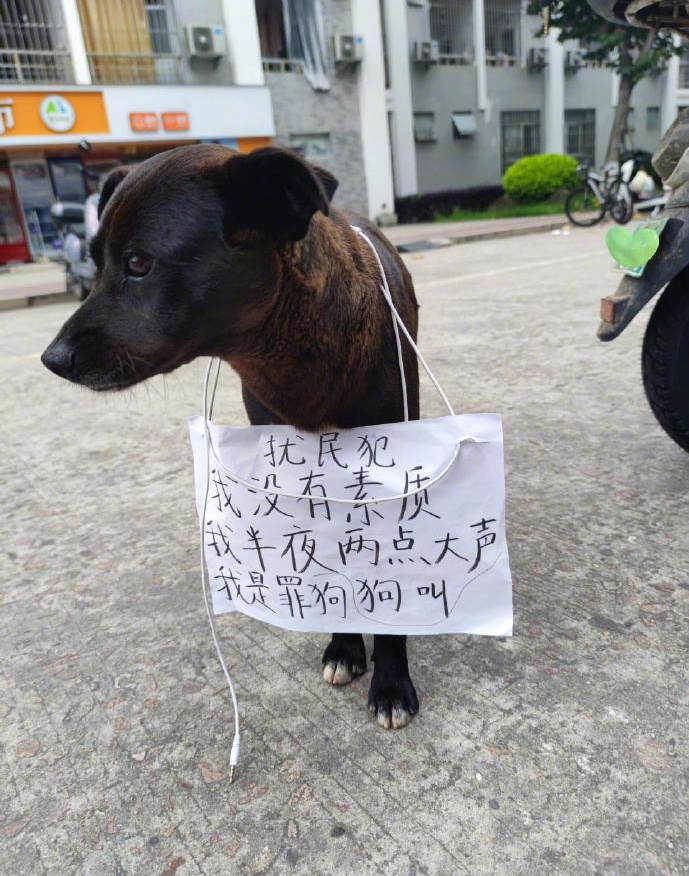 扰民犯
我没有素质
我半夜两点大声
我是罪狗狗叫